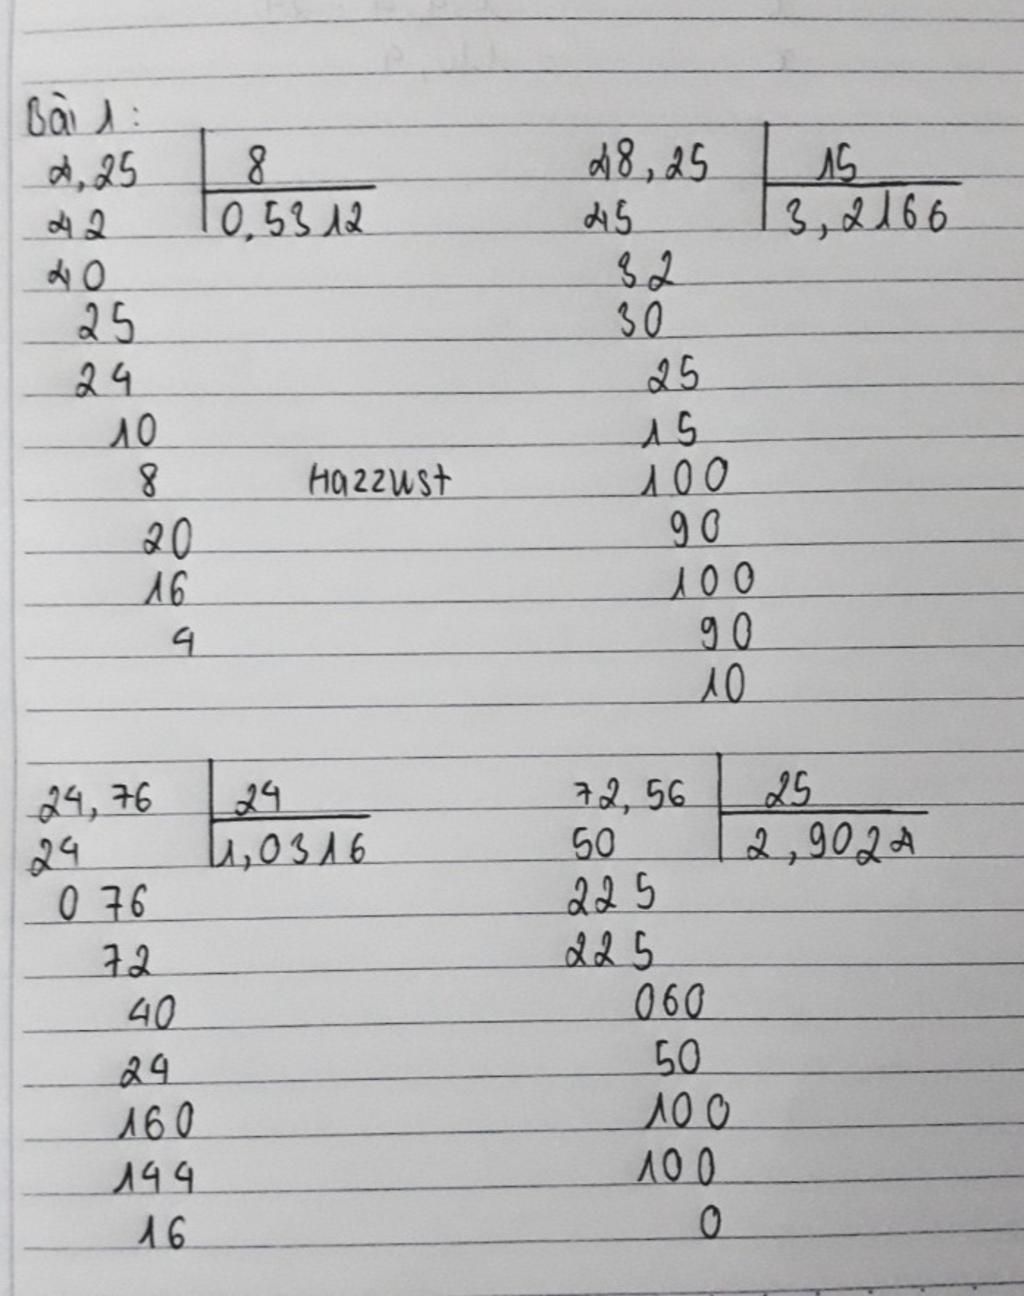 Bài 1:
4,25 8 48,25 15
42 0,5312 45 3,2166
40 32
25 30
24 25
10 15
8 Hazzust 100
20 90
16 100
4 90
10
24,76 24 72,56 25
24 1,0316 50 2,9024
0 76 225
72 225
40 060
24 50
160 100
144 100
16 0